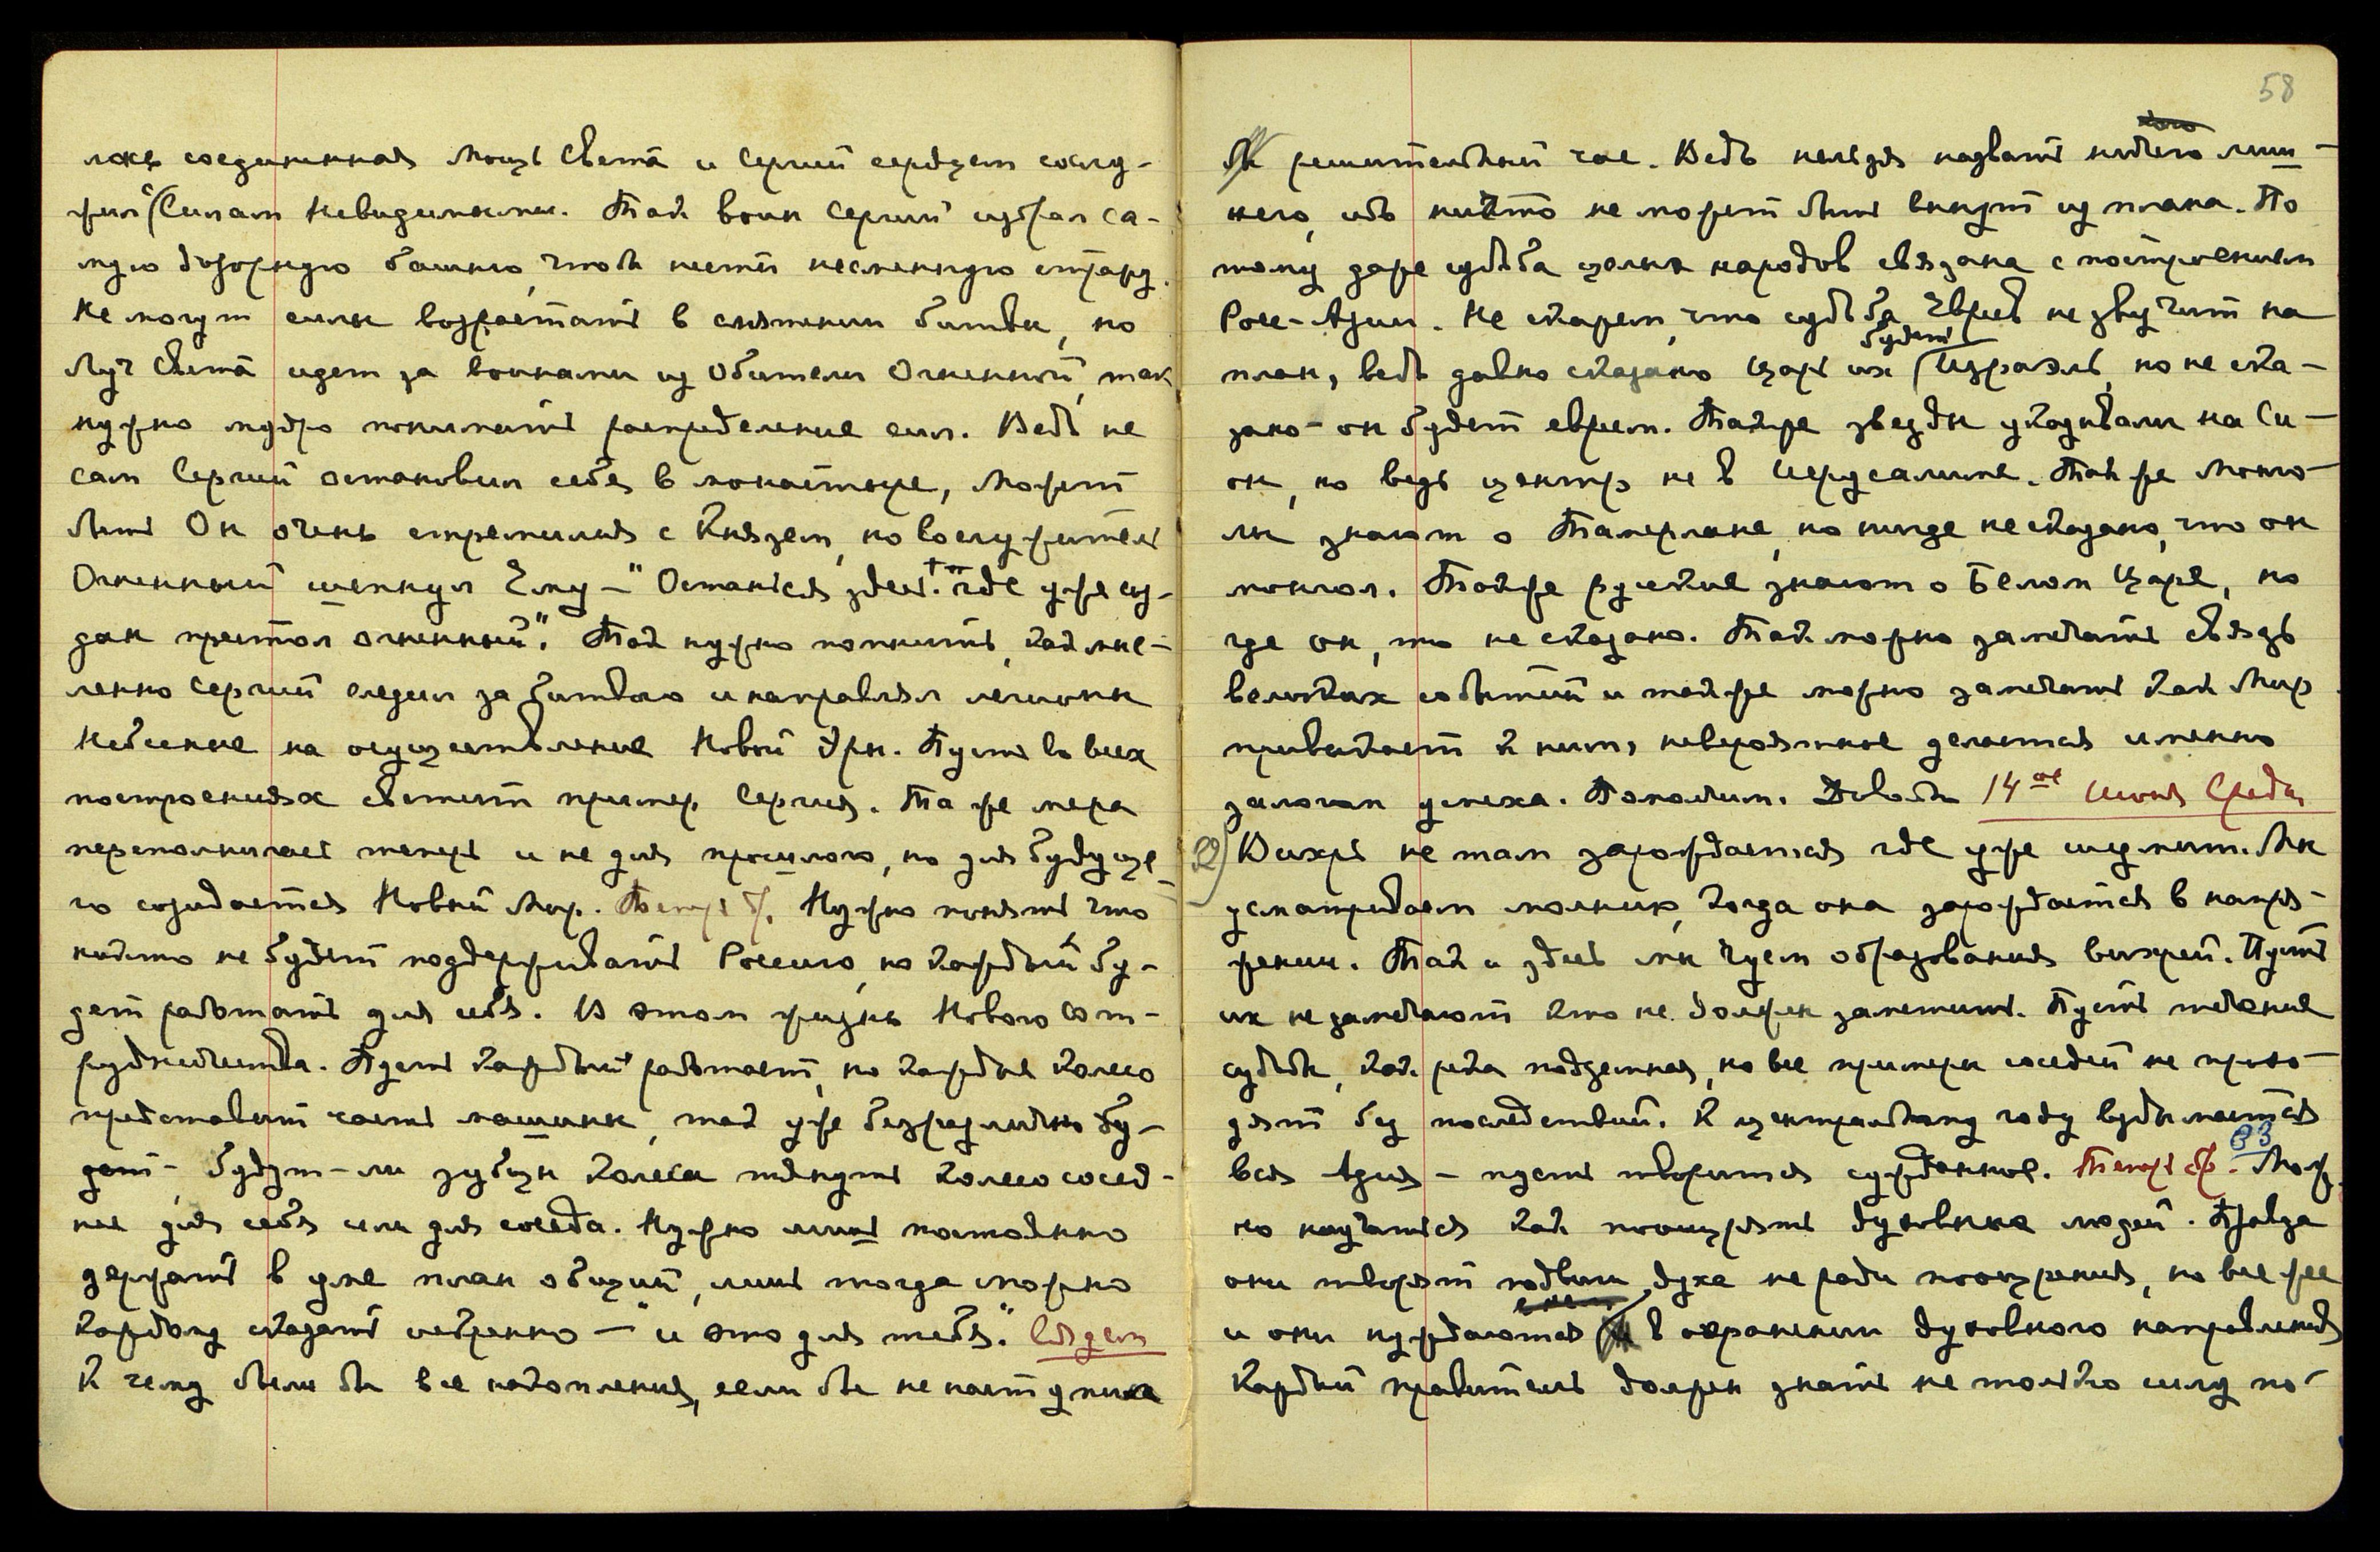 лась соединенная Мощь Света и Сергий сердцем сослу-
жил Силам Невидимыми. Так воин Сергий избрал са-
мую дозорную башню, чтоб нести несменную стражу.
Не могут силы возрастать в смятении битвы, но
Луч Света идет за воинами из Обители Огненной, так
нужно мудро понимать распределение сил. Ведь не
сам Сергий остановил себя в монастыре, Может
быть Он очень стремился с Князем, но Вослужитель
Огненный шепнул Ему – "Останься здесь, где уже соз-
дан престол огненный". Так нужно понимать, как мыс-
ленно Сергий следил за битвою и направлял легионы
Небесные на осуществление Новой Эры. Пусть во всех
построениях светит пример Сергия. Та же мера
переполнилась теперь и не для прошлого, но для будуще-
го созидается Новый Мир. Теперь др. Нужно понять что
никто не будет поддерживать Россию, но каждый бу-
дет работать для себя. В этом жизнь Нового Сот-
рудничества. Пусть каждый работает, но каждое колесо
представит часть машины, так уже безразлично бу-
дет, будут-ли зубцы колеса тянуть колесо сосед-
нее для себя или для соседа. Нужно лишь постоянно
держать в уме план общий, лишь тогда можно
каждому сказать искренно – "и это для тебя". Сядем
К чему были бы все накопления, если бы не наступил
58
бы решительный час. Ведь нельзя назвать ничего лиш-
него, ибо ничто не может быть вынут из плана. По
тому даже судьба целых народов связана с построением
Росс-Азии. Не скажем, что судьба Евреев не звучит на
план, ведь давно сказано Царь их будет Израэль, но не ска-
зано – он будет евреем. Также звезды указывали на Си-
он, но ведь центр не в Иерусалиме. Так же Монго-
лы знают о Тамерлане, но нигде не сказано, что он
монгол. Также русские знают о Белом Царе, но
где он, то не сказано. Так можно замечать связь
великих событий и также можно замечать как Мир
привыкает к ним, невероятное делается именно
залогом успеха. Помолчим. Довольно 14ое Июня Среда
Вихрь не там зарождается где уже шумит. Мы
усматриваем молнию, когда она зарождается в напря-
жении. Так и здесь мы чуем образования вихрей. Пусть
их не замечают кто не должен заметить. Пусть течение
судьбы, как река подземная, но все примеры соседей не прохо-
дят без последствий. К центральному году вздымается
вся Азия – пусть творится сужденное. Теперь др. 33 Мож
но научаться как поощрять духовных людей. Правда
они творят подвиги духа не ради поощрения, но все же
и они нуждаются в охранении духовного направления
Каждый правитель должен знать не только силу по-